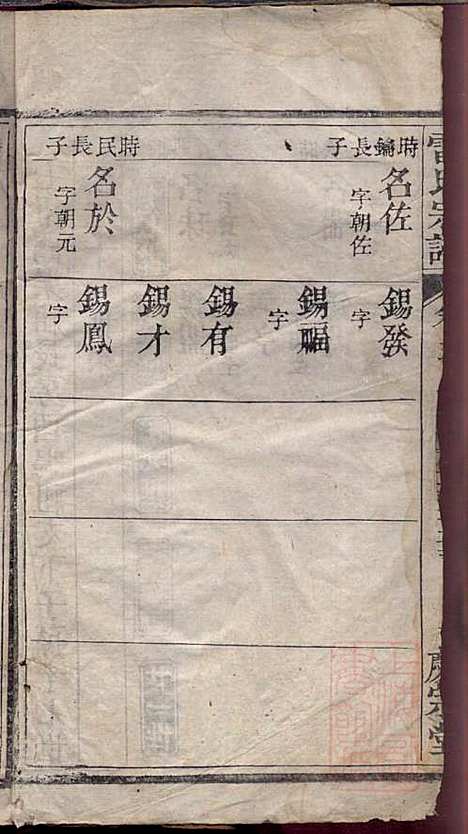 時鑰長子
名佐
字朝佐
時民長子
名於
字朝元
錫發
字
錫福
字
錫有
錫才
錫鳳
字
雷氏宗譜